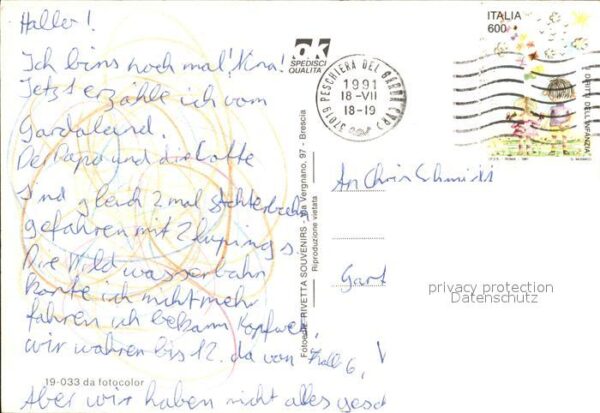 Hallo!
Ich bins noch mal!
Jetzt erzähle ich vom
Gardaland.
Der Papa und die Lotte
sind gleich 2 mal
gefahren mit 2 Lupings.
Die Wild wasserbahn
konte ich nicht mehr
fahren ich bekam Kopfweh,
wir wahren bis 12. da von
Aber wir haben nicht alles
19-033 da fotocolor
ok
SPEDISCI
QUALITÀ
Fotocolor RIVETTA SOUVENIRS - Via Vergnano, 97 - Brescia
Riproduzione vietata
37019 PESCHIERA DEL GARDA (VR)
1991
18-VII
18-19
ITALIA
600
DIRITTI DELL'INFANZIA
An Chris Schmidt
Gart
privacy protection
Datenschutz